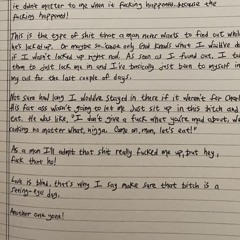 it didn't matter to me when it fucking happened, because the
fucking happened!
This is the type of shit that a man never wants to find out while
he's locked up. Or maybe so 'cause only God knows what I would've done
if I wasn't locked up right now. As soon as I found out, I told
them to just lock me in and I've basically just been to myself in
my cell for the last couple of days.
Not sure how long I would've stayed in there if it weren't for
His fat ass wasn't going to let me just sit up in this bitch and
eat. He was like, "I don't give a fuck what you're mad about, we
cooking no matter what, nigga. Come on, man, let's eat!"
As a man I'll admit that shit really fucked me up, but hey,
fuck that ho!
Love is blind, that's why I say make sure that bitch is a
seeing-eye dog.
Another one gone!